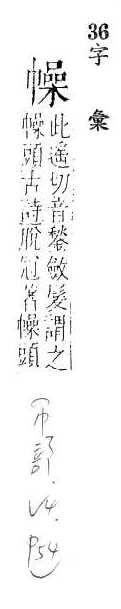 36字彙
幧
此遥切音鍫斂髮謂之
幧頭古詩脫冠著幧頭
(巾部.V4.P54)